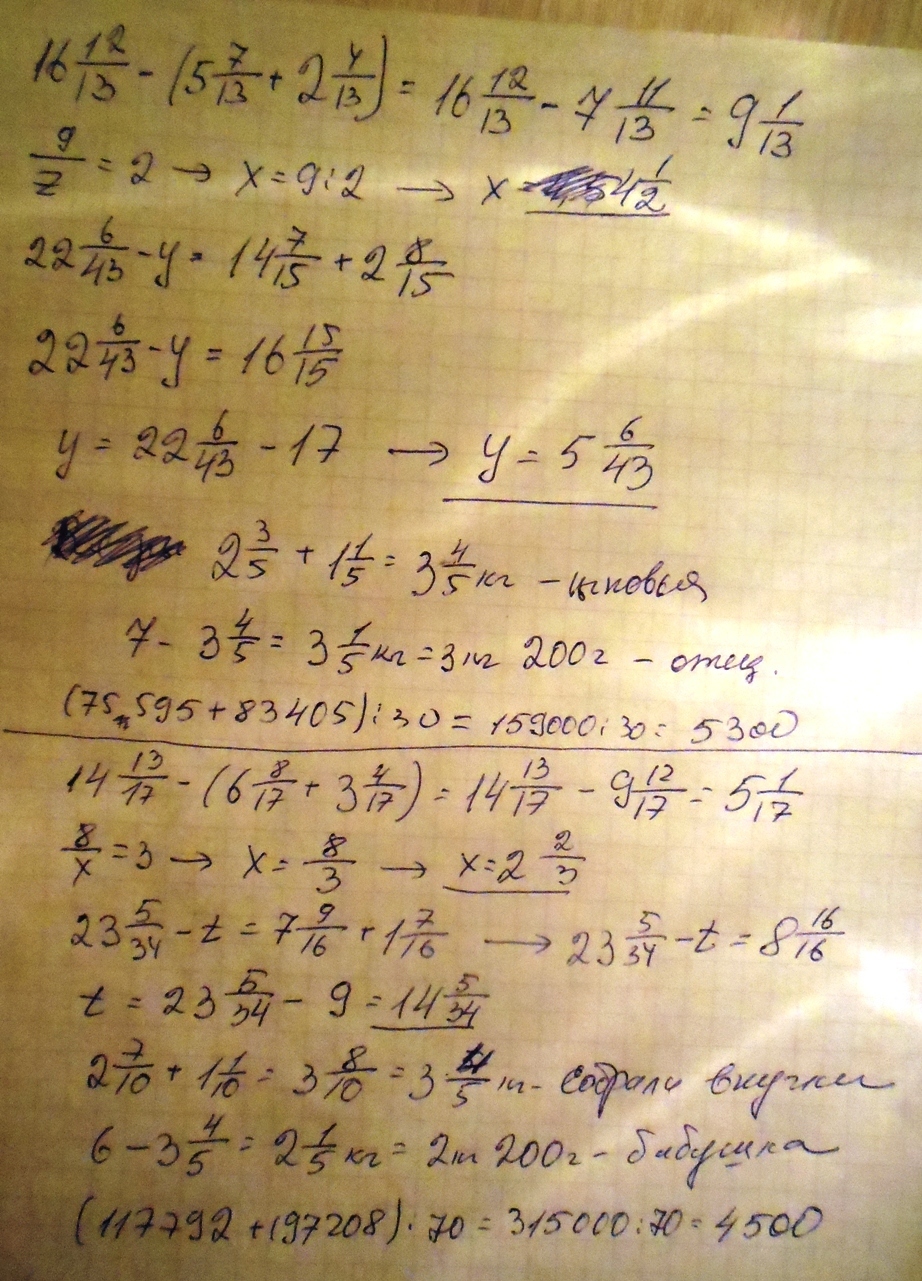 16 12/13 - (5 7/13 + 2 4/13) = 16 12/13 - 7 11/13 = 9 1/13
9/z = 2 → x = 9:2 → x = 4 1/2
22 6/43 - y = 14 7/15 + 2 8/15
22 6/43 - y = 16 15/15
y = 22 6/43 - 17 → y = 5 6/43
2 3/5 + 1 1/5 = 3 4/5 кг -
7 - 3 4/5 = 3 1/5 кг = 3 кг 200 г - отец.
(75 595 + 83405) : 30 = 159000 : 30 = 5300
14 13/17 - (6 8/17 + 3 4/17) = 14 13/17 - 9 12/17 = 5 1/17
8/x = 3 → x = 8/3 → x = 2 2/3
23 5/34 - t = 7 9/16 + 1 7/16 → 23 5/34 - t = 8 16/16
t = 23 5/34 - 9 = 14 5/34
2 7/10 + 1 1/10 = 3 8/10 = 3 4/5 кг - собрали внучки
6 - 3 4/5 = 2 1/5 кг = 2 кг 200 г - бабушка
(117792 + 197208) : 70 = 315000 : 70 = 4500